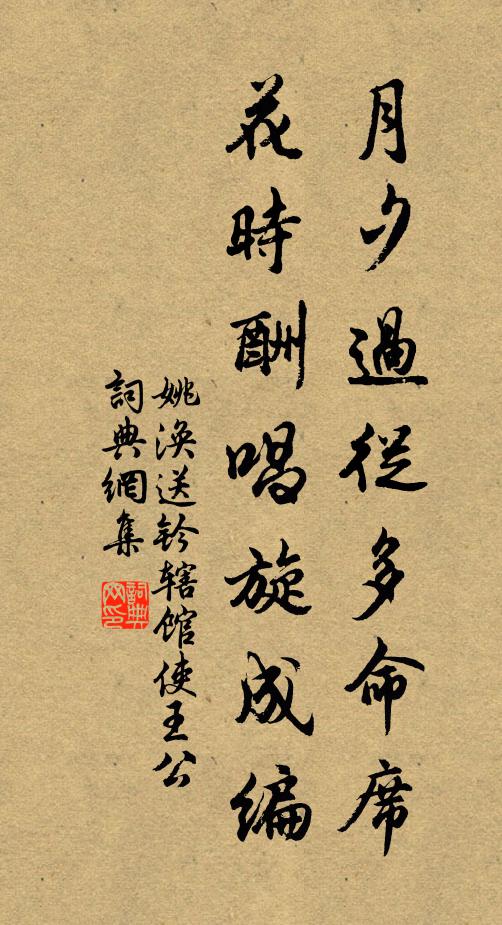 月夕過從多命席
花時酬唱旋成編
姚渙送鈐辖館使王公
詞典網集
詞典網印